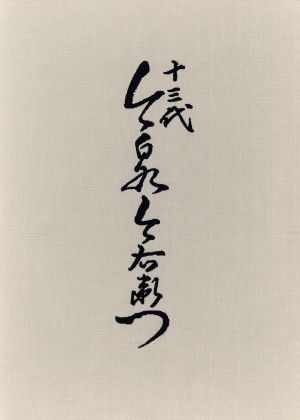 十三代
今泉今右衛門